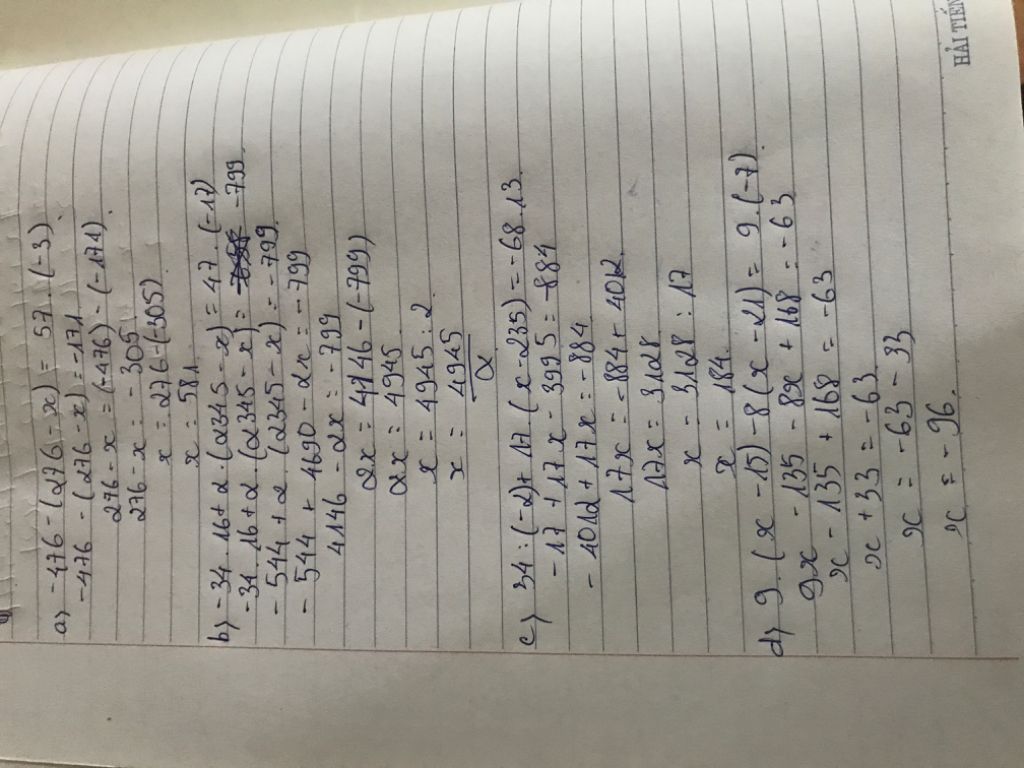 a) -476 - (276 - x) = 57 . (-3)
-476 - (276 - x) = -171
276 - x = (-476) - (-171)
276 - x = -305
x = 276 - (-305)
x = 581
b) -34 . 16 + 2 . (2345 - x) = 47 . (-17)
-34 . 16 + 2 . (2345 - x) = -799
-544 + 2 . (2345 - x) = -799
-544 + 4690 - 2x = -799
4146 - 2x = -799
2x = 4146 - (-799)
2x = 4945
x = 4945 : 2
x = 4945
2
c) 34 : (-2) + 17 (x - 235) = -68 . 13
-17 + 17x - 3995 = -884
-4012 + 17x = -884
17x = -884 + 4012
17x = 3128
x = 3128 : 17
x = 184
d) 9 . (x - 15) - 8 (x - 21) = 9 . (-7)
9x - 135 - 8x + 168 = -63
x - 135 + 168 = -63
x + 33 = -63
x = -63 - 33
x = -96.
HẢI TIẾN